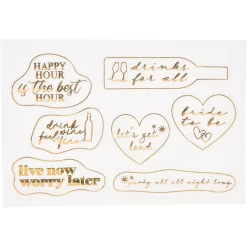 HAPPY
HOUR
is the best
HOUR
drinks
for all
drink
wine
feel
fine
let's get
loud
bride
to be
live now
worry later
party all night long